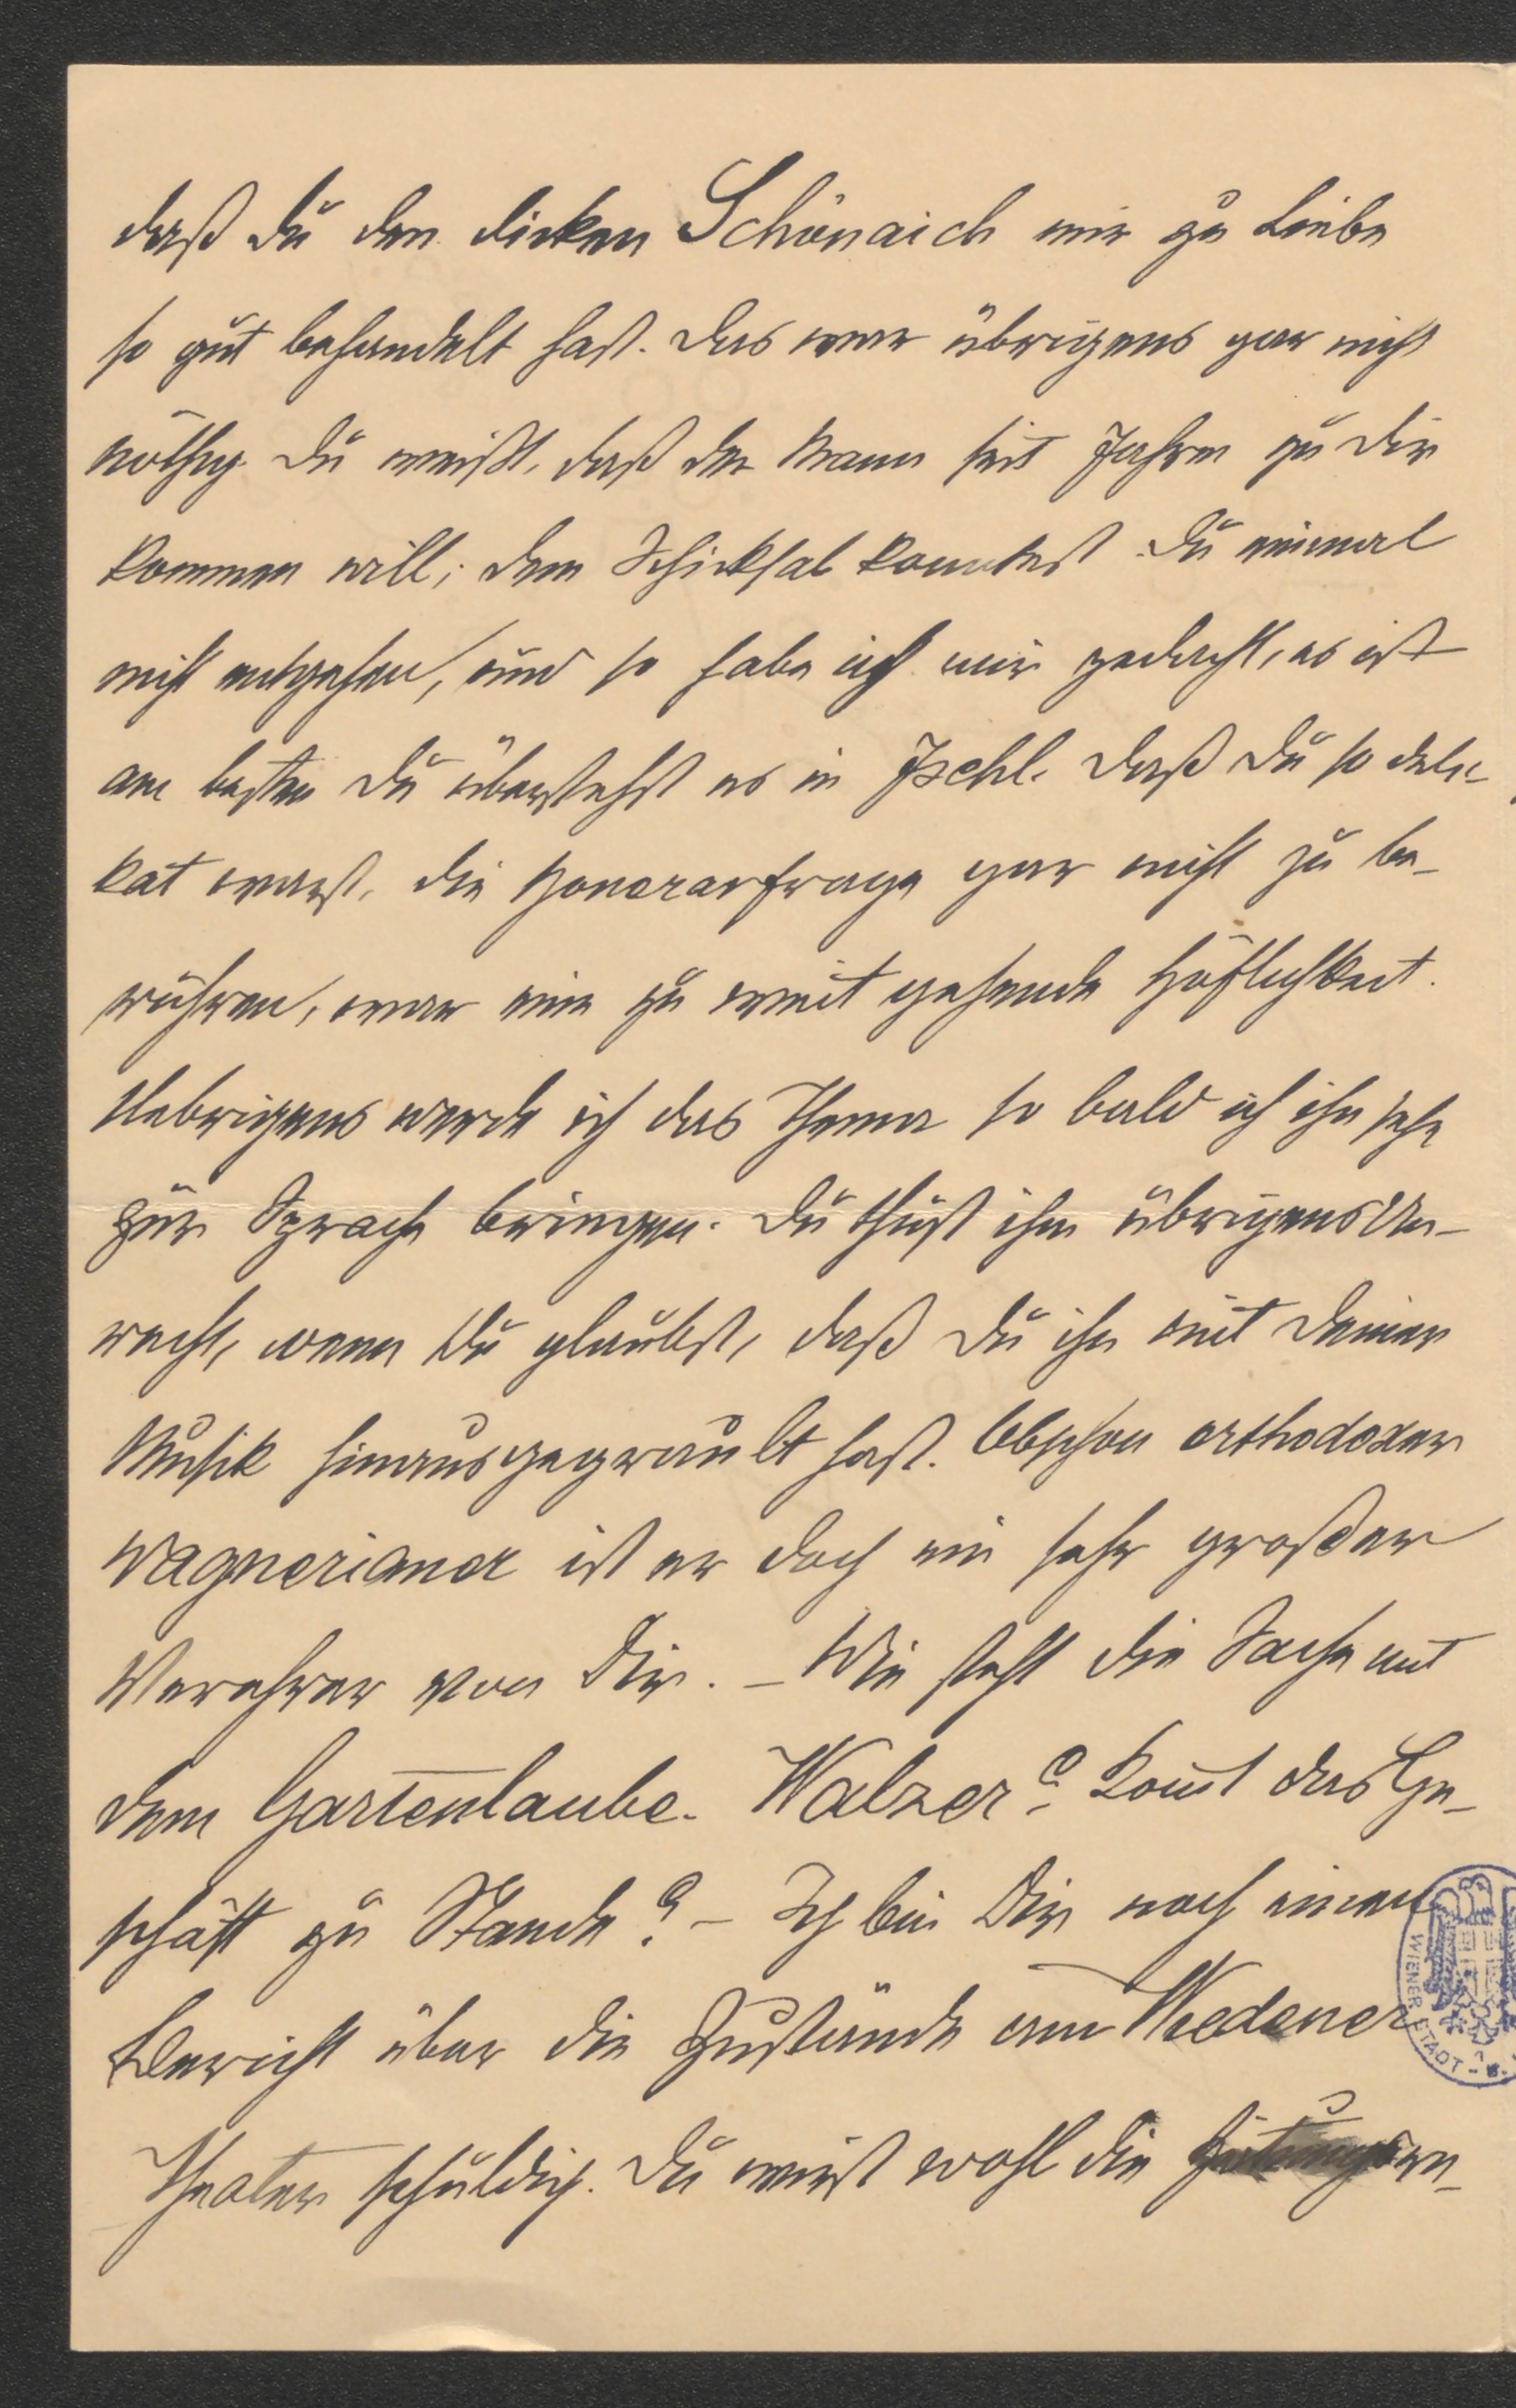 daß Du den dicken Schönaich mir zu Liebe
so gut behandelt hast. Das war übrigens gar nicht
nöthig. Du weißt, daß der Mann seit Jahren zu Dir
kommen will; dem Schicksal konntest Du einmal
nicht entgehen, und so habe ich mir gedacht, es ist
am besten Du überstehst es in Ischl. Daß Du so deli-
kat warst, die Honorarfrage gar nicht zu be-
rühren, war eine zu weit gehende Höflichkeit.
Uebrigens werde ich das Thema so bald ich ihn sehe
zur Sprache bringen. Du thust ihm übrigens Un-
recht, wenn Du glaubst, daß Du ihn mit Deiner
Musik hinausgegrault hast. Obschon orthodoxer
Wagnerianer ist er doch ein sehr großer
Verehrer von Dir. – Wie steht die Sache mit
dem Gartenlaube-Walzer? Kom̄t das Ge-
schäft zu Stande? – Ich bin Dir noch einen
Bericht über die Zustände am Wiedener
Theater schuldig. Du wirst wohl die Zeitungen
WIENER STADT-